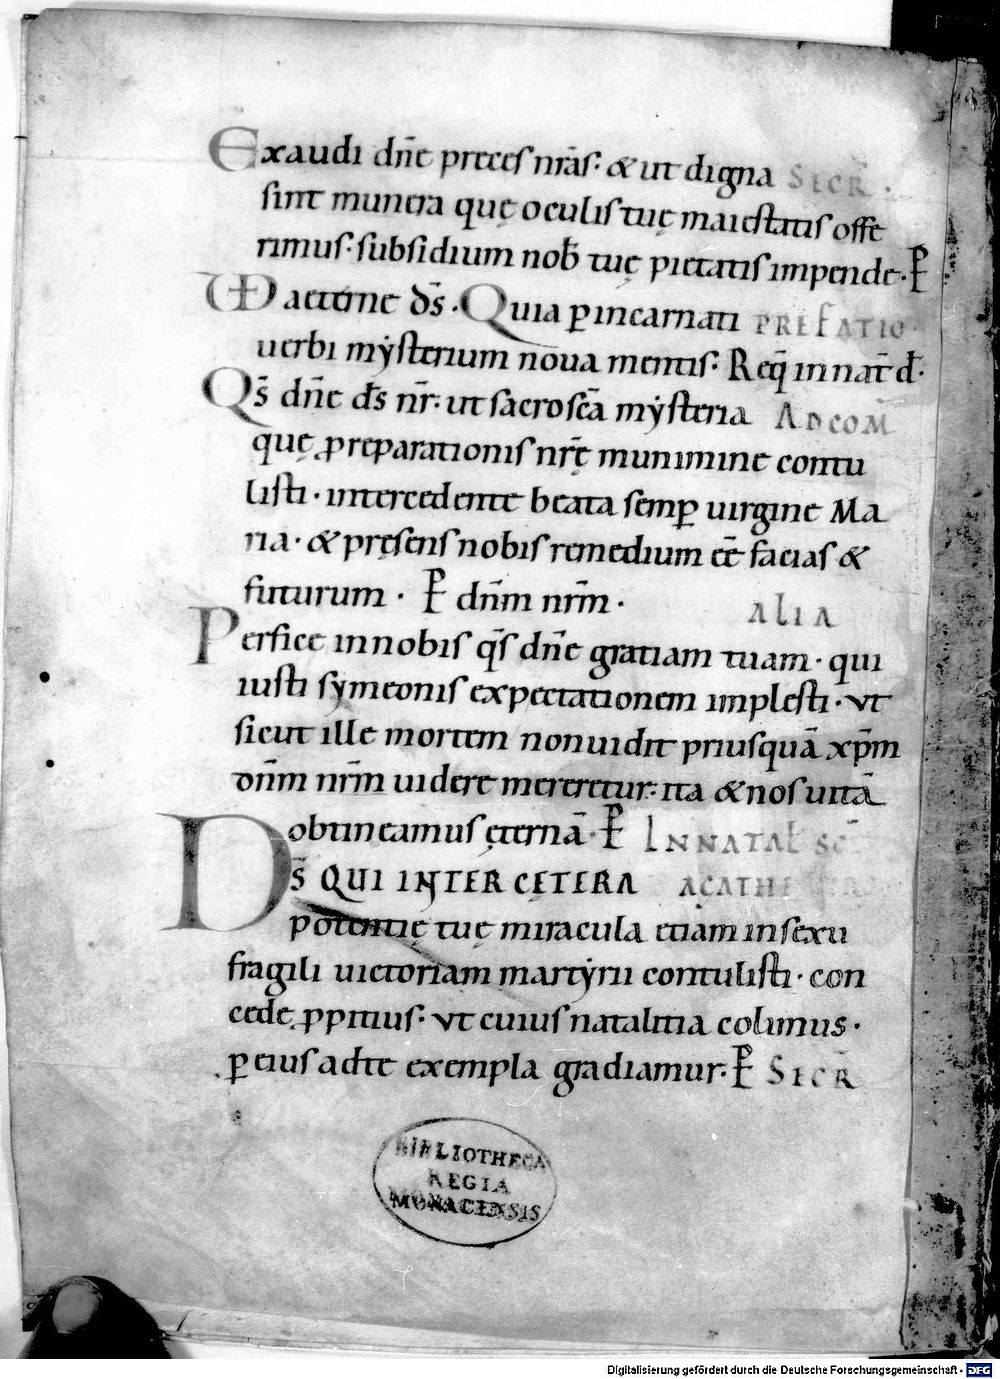 Exaudi dn̄e preces nr̄as· & ut digna SECR̄·
sint munera quę oculis tuę maiestatis offe
rimus· subsidium nob̄ tuę pietatis impende· P̄
VD aeterne d̄s· Quia ꝑ incarnati PREFATIO·
uerbi mẏsterium noua mentis· Req̄ in nat̄ dn̄i·
Qs̄ dn̄e d̄s nr̄· ut sacrosc̄a mẏsteria AD COM̄
quę ꝓ reparationis nr̄ę munimine contu
listi· intercedente beata semꝑ uirgine Ma
ria· & pręsens nobis remedium eē facias &
futurum· P̄ dn̄m nr̄m· ALIA
Perfice in nobis qs̄ dn̄e gratiam tuam· qui
iusti sẏmeonis expectationem implesti· ut
sicut ille mortem non uidit priusquā xp̄m
dn̄m nr̄m uidere mereretur· ita & nos uitā
obtineamus ęternā· P̄ IN NATAL̄ SC̄
DS̄ QUI INTER CĘTERA AGATHE
potentię tuę miracula etiam in sexu
fragili uictoriam martẏrii contulisti· con
cede ꝓpitius· ut cuius natalitia colimus·
ꝑ eius ad te exempla gradiamur· P̄ SECR̄
BIBLIOTHECA
REGIA
MONACENSIS
Digitalisierung gefördert durch die Deutsche Forschungsgemeinschaft - DFG